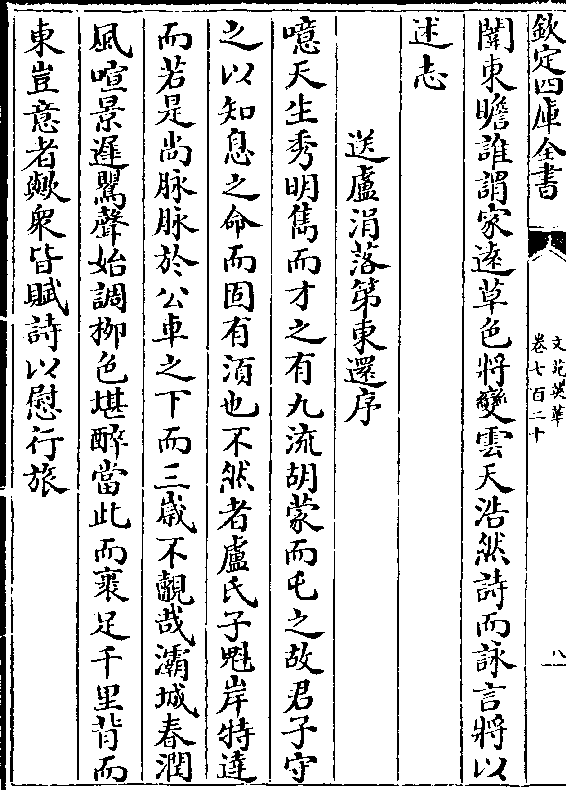 欽定四庫全書
文苑英華
卷七百二十
八
關東瞻誰謂家逺草色將變雲天浩然詩而詠言將以
述志
送盧涓落第東還序
噫天生秀明雋而才之有九流胡蒙而屯之故君子守
之以知息之命而固有須也不然者盧氏子魁岸特達
而若是尚脉脉於公車之下而三嵗不覿哉灞城春潤
風喧景遲鸎聲始調栁色堪醉當此而裹足千里背而
東豈意者歟衆皆賦詩以慰行旅